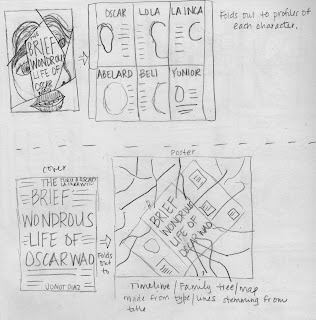 THE
BRIEF
WONDROUS
LIFE OF
OSCAR
WAO
OSCAR
LOLA
LA INCA
ABELARD
BELI
YUNIOR
Folds out to profiles of
each character.
cover
THE
BRIEF
WONDROUS
LIFE OF
OSCAR WAO
JUNOT DIAZ
Folds
out
to
Poster
BRIEF
WONDROUS
LIFE OF
OSCAR WAO
Timeline/Family tree/map
made from type/lines stemming from
title